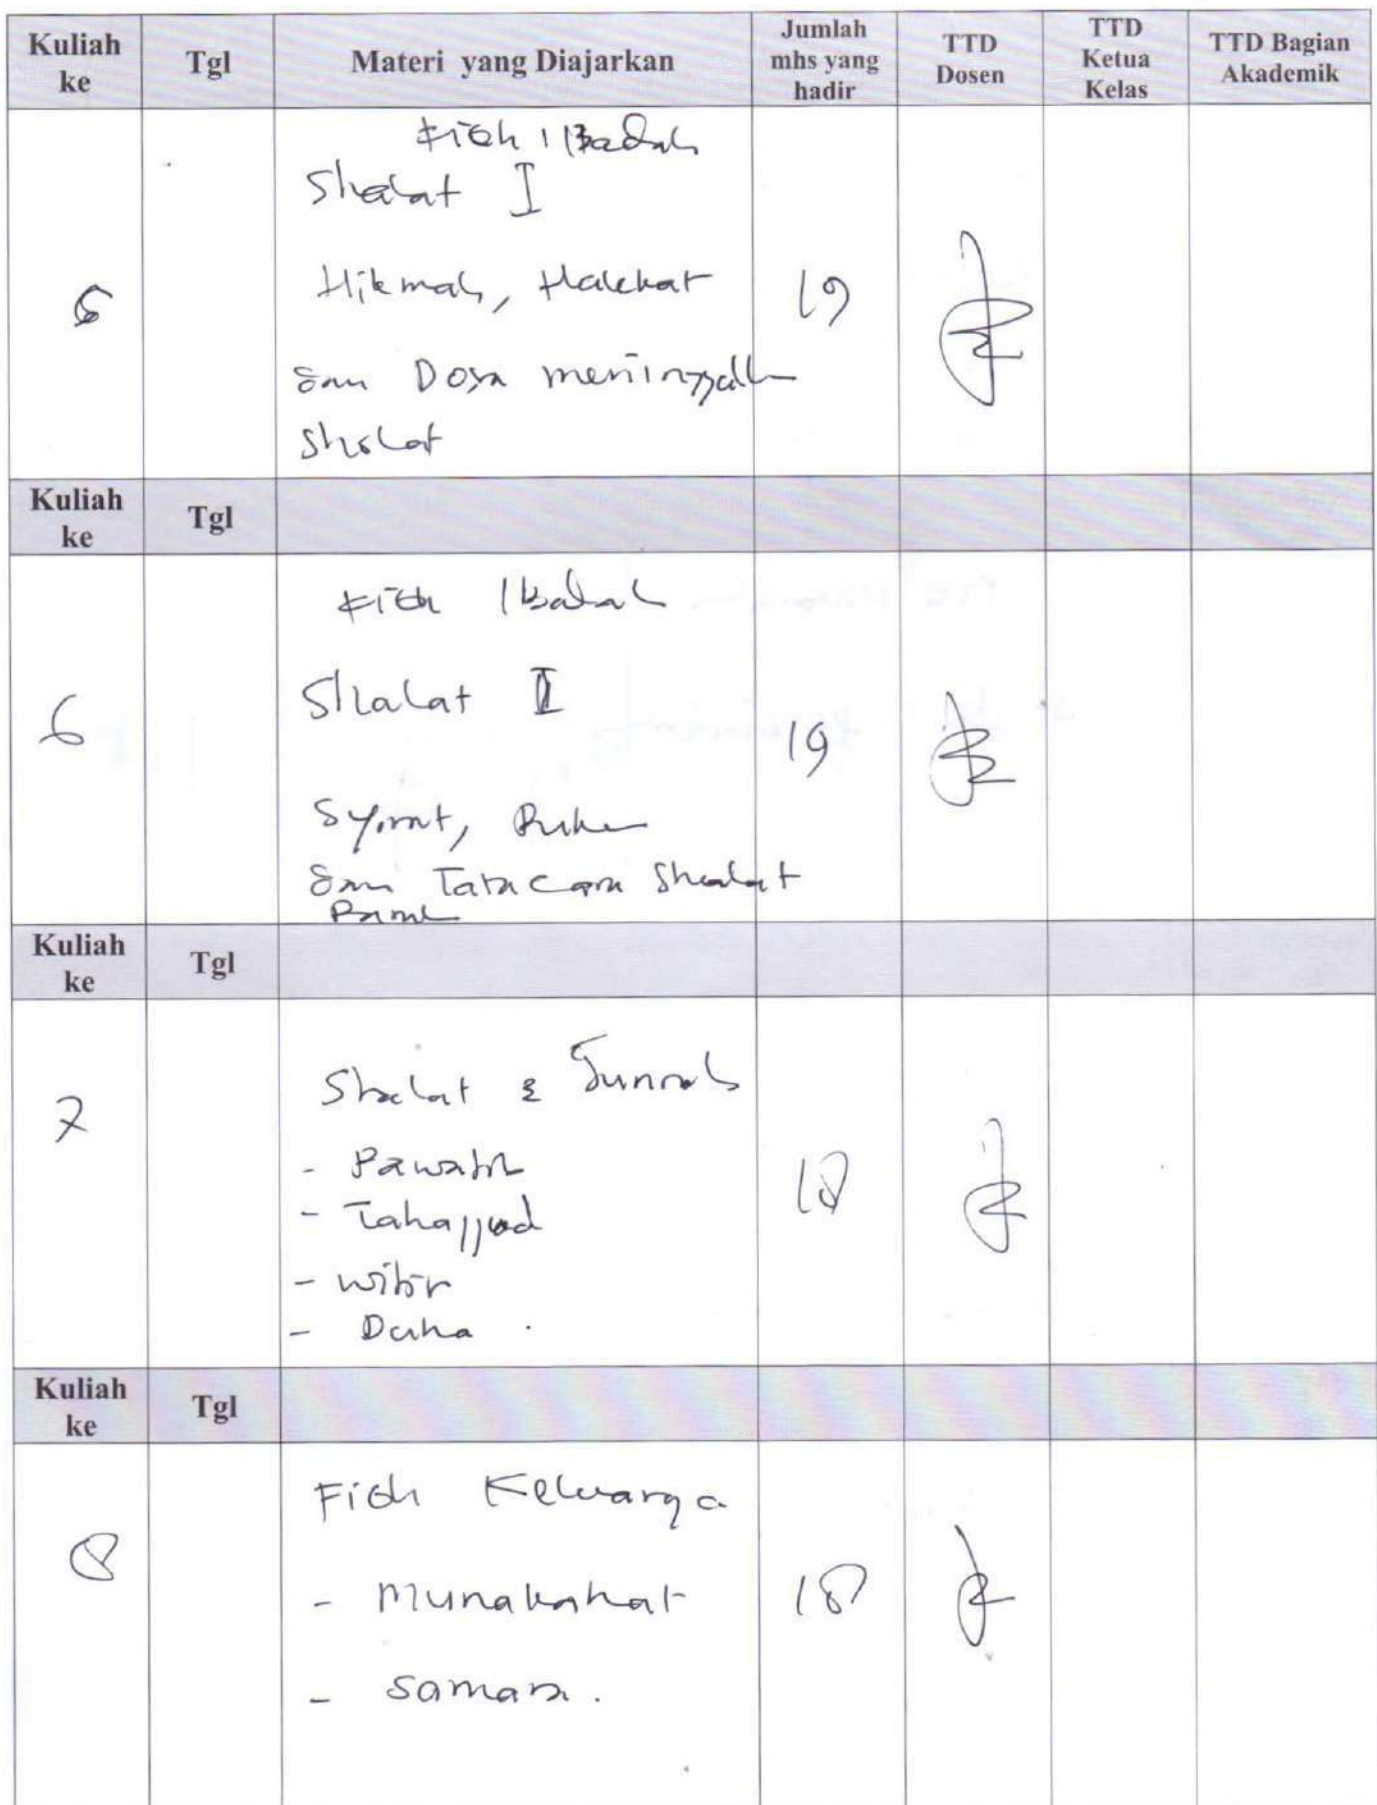 Kuliah ke Tgl Materi yang Diajarkan Jumlah mhs yang hadir TTD Dosen TTD Ketua Kelas TTD Bagian Akademik
Fiqh Ibadah
Shalat I
5 Hikmah, 19
dan Dosa meninggalkan
Sholat
Kuliah ke Tgl
Fiqh Ibadah
6 Shalat II 19
Syarat, Rukun
dan Tata cara Shalat
Kuliah ke Tgl
Shalat 2 Sunnah
7 - Rawatib 18
- Tahajjud
- witir
- Duha .
Kuliah ke Tgl
Fiqh Keluarga
8 - Munakahat 18
- Samara .